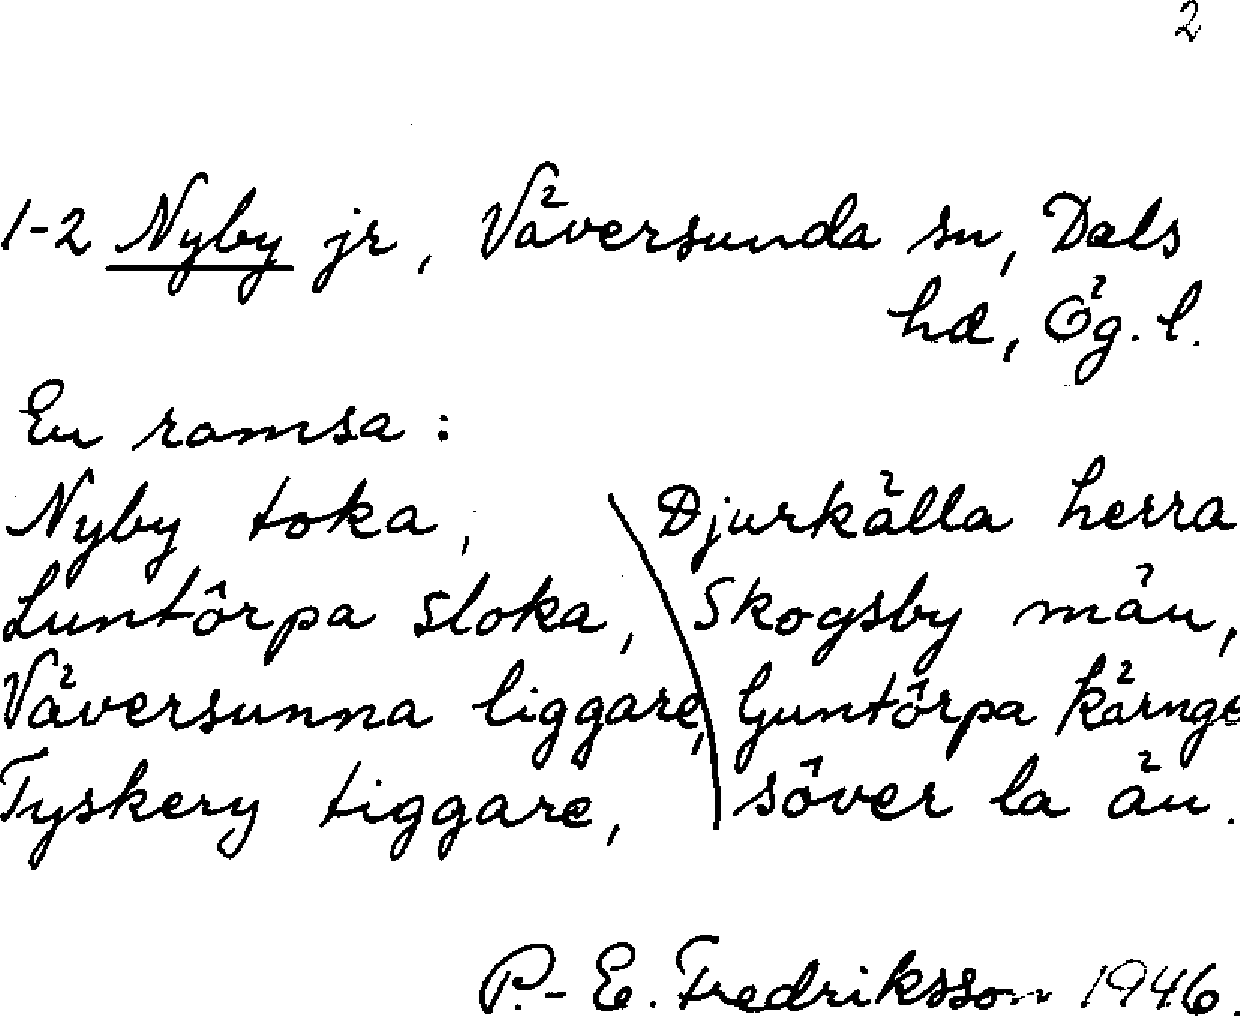 2
1-2 Nyby jr, Väversunda sn, Dals
hd, Ög. l.
En ramsa:
Nyby toka,
Luntôrpa sloka,
Väversunna liggare,
Tyskery tiggare,
Djurkälla herra
Skogsby män,
Guntôrpa kärnge
sôver la än.
P.-E. Fredriksson 1946.